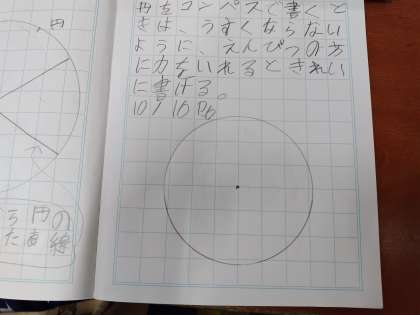 円
円をコンパスで書くと
きは、うすくならない
ように、えんぴつの方
に力をいれるときれい
に書ける。
10/16
円の
線